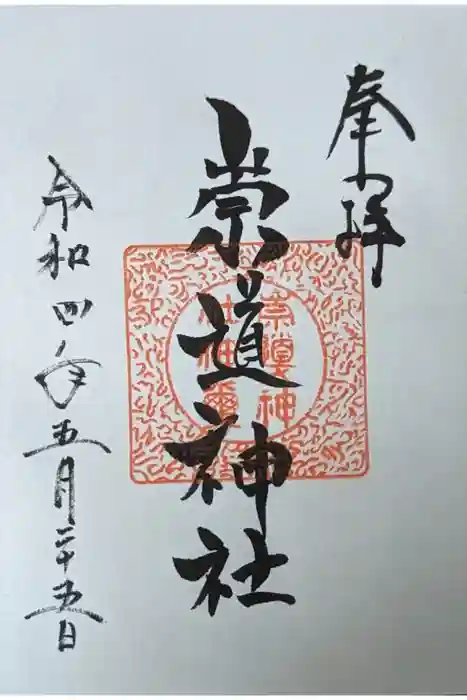 奉拝
崇道神社
崇道神社神璽
令和四年五月二十五日